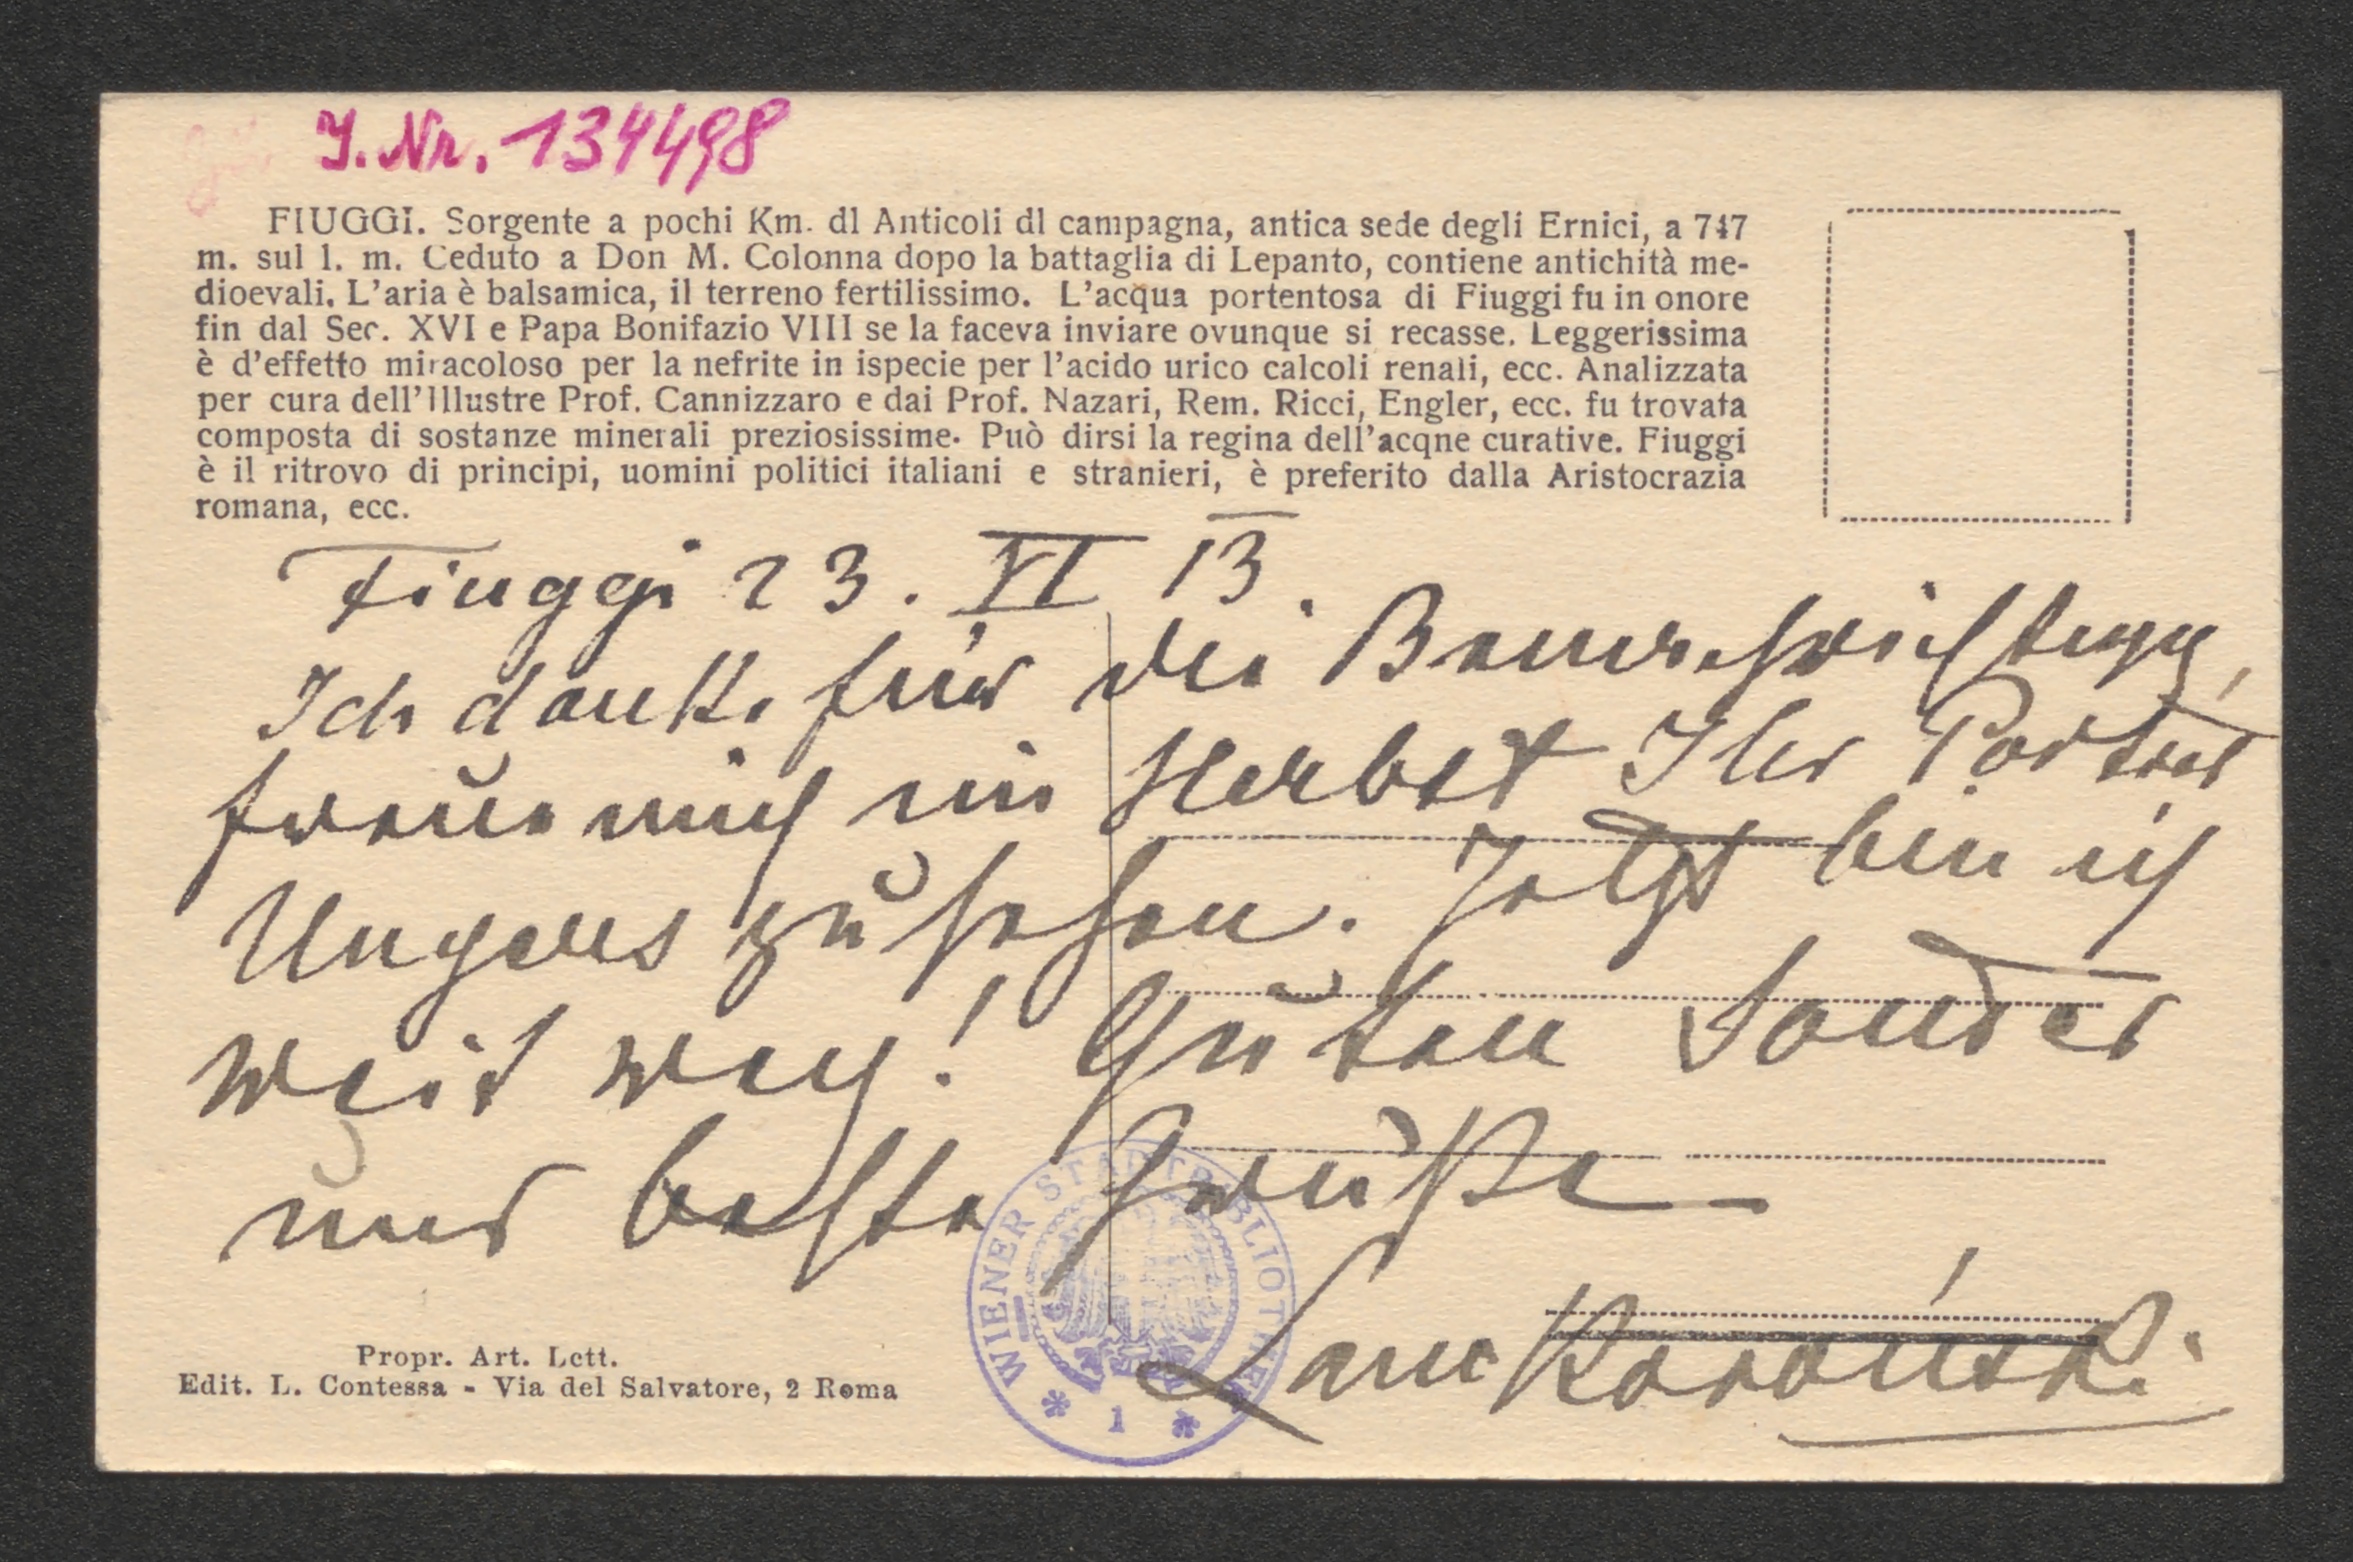 J. Nr. 134498
FIUGGI. Sorgente a pochi Km. dl Anticoli dl campagna, antica sede degli Ernici, a 747
m. sul l. m. Ceduto a Don M. Colonna dopo la battaglia di Lepanto, contiene antichità me-
dioevali. L'aria è balsamica, il terreno fertilissimo. L'acqua portentosa di Fiuggi fu in onore
fin dal Sec. XVI e Papa Bonifazio VIII se la faceva inviare ovunque si recasse. Leggerissima
è d'effetto miracoloso per la nefrite in ispecie per l'acido urico calcoli renali, ecc. Analizzata
per cura dell'Illustre Prof. Cannizzaro e dai Prof. Nazari, Rem. Ricci, Engler, ecc. fu trovata
composta di sostanze minerali preziosissime. Può dirsi la regina dell'acqne curative. Fiuggi
è il ritrovo di principi, uomini politici italiani e stranieri, è preferito dalla Aristocrazia
romana, ecc.
Fiuggi 23. VI 13.
Ich danke für die Benachrichtigung,
freue mich im Herbst Ihr Porträt
Ungers zu sehen. Jetzt bin ich
weit weg! Guten
und beste Grüße
Lanckoroński
WIENER STADTBIBLIOTHEK
* 1 *
Propr. Art. Lett.
Edit. L. Contessa - Via del Salvatore, 2 Roma